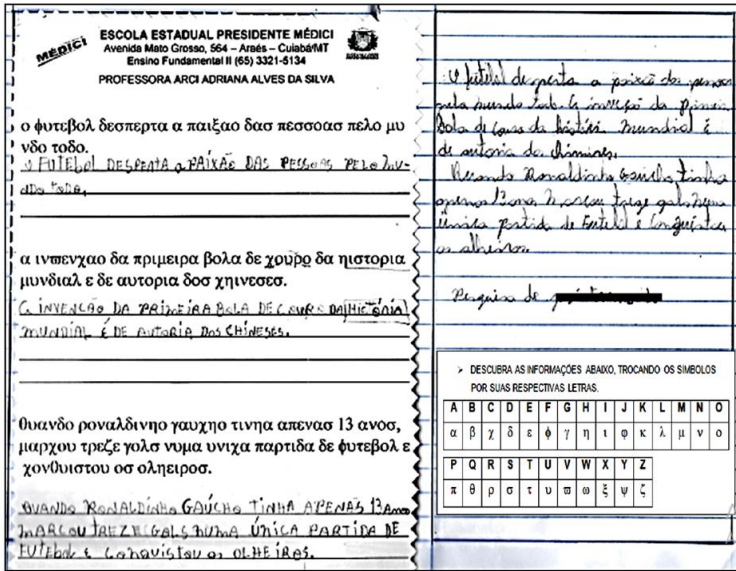 MÉDICI
ESCOLA ESTADUAL PRESIDENTE MÉDICI
Avenida Mato Grosso, 564 – Araés – Cuiabá/MT
Ensino Fundamental II (65) 3321-5134
PROFESSORA ARCI ADRIANA ALVES DA SILVA
ο φυτεβολ δεσπερτα α παιξαο δασ πεσσοασ πελο μυ
νδο τοδο.
O FUTEBOL DESPENTA A PAIXÃO DAS PESSOAS PELO MU-
NDO TODO.
α ινϖενχαο δα πριμειρα βολα δε χουρο δα ηιστορια
μυνδιαλ ε δε αυτορια δοσ χηινεσεσ.
A INVENÇÃO DA PRIMEIRA BOLA DE COURO DA HISTÓRIA
MUNDIAL É DE AUTORIA DOS CHINESES.
θυανδο ροναλδινηο γαυχηο τινηα απενασ 13 ανοσ,
μαρχου τρεζε γολσ νυμα υνιχα παρτιδα δε φυτεβολ ε
χονθυιστου οσ οληειροσ.
QUANDO RONALDINHO GAÚCHO TINHA APENAS 13 Anos
MARCOU TREZE GOLS NUMA ÚNICA PARTIDA DE
FUTEBOL E CONQUISTOU OS OLHEIROS.
O futebol desperta a paixão das pessoas
pelo mundo todo. A invenção da primeira
Bola de couro da história mundial é
de autoria do chineses.
Ronaldinho Gaúcho tinha
apenas 13 anos, marcou treze gols numa
única partida de futebol e
os olheiros.
Pesquisa de
➢ DESCUBRA AS INFORMAÇÕES ABAIXO, TROCANDO OS SIMBOLOS
POR SUAS RESPECTIVAS LETRAS.
A B C D E F G H I J K L M N O
α β χ δ ε φ γ η ι φ κ λ μ ν ο
P Q R S T U V W X Y Z
π θ ρ σ τ υ ϖ ω ξ ψ ζ